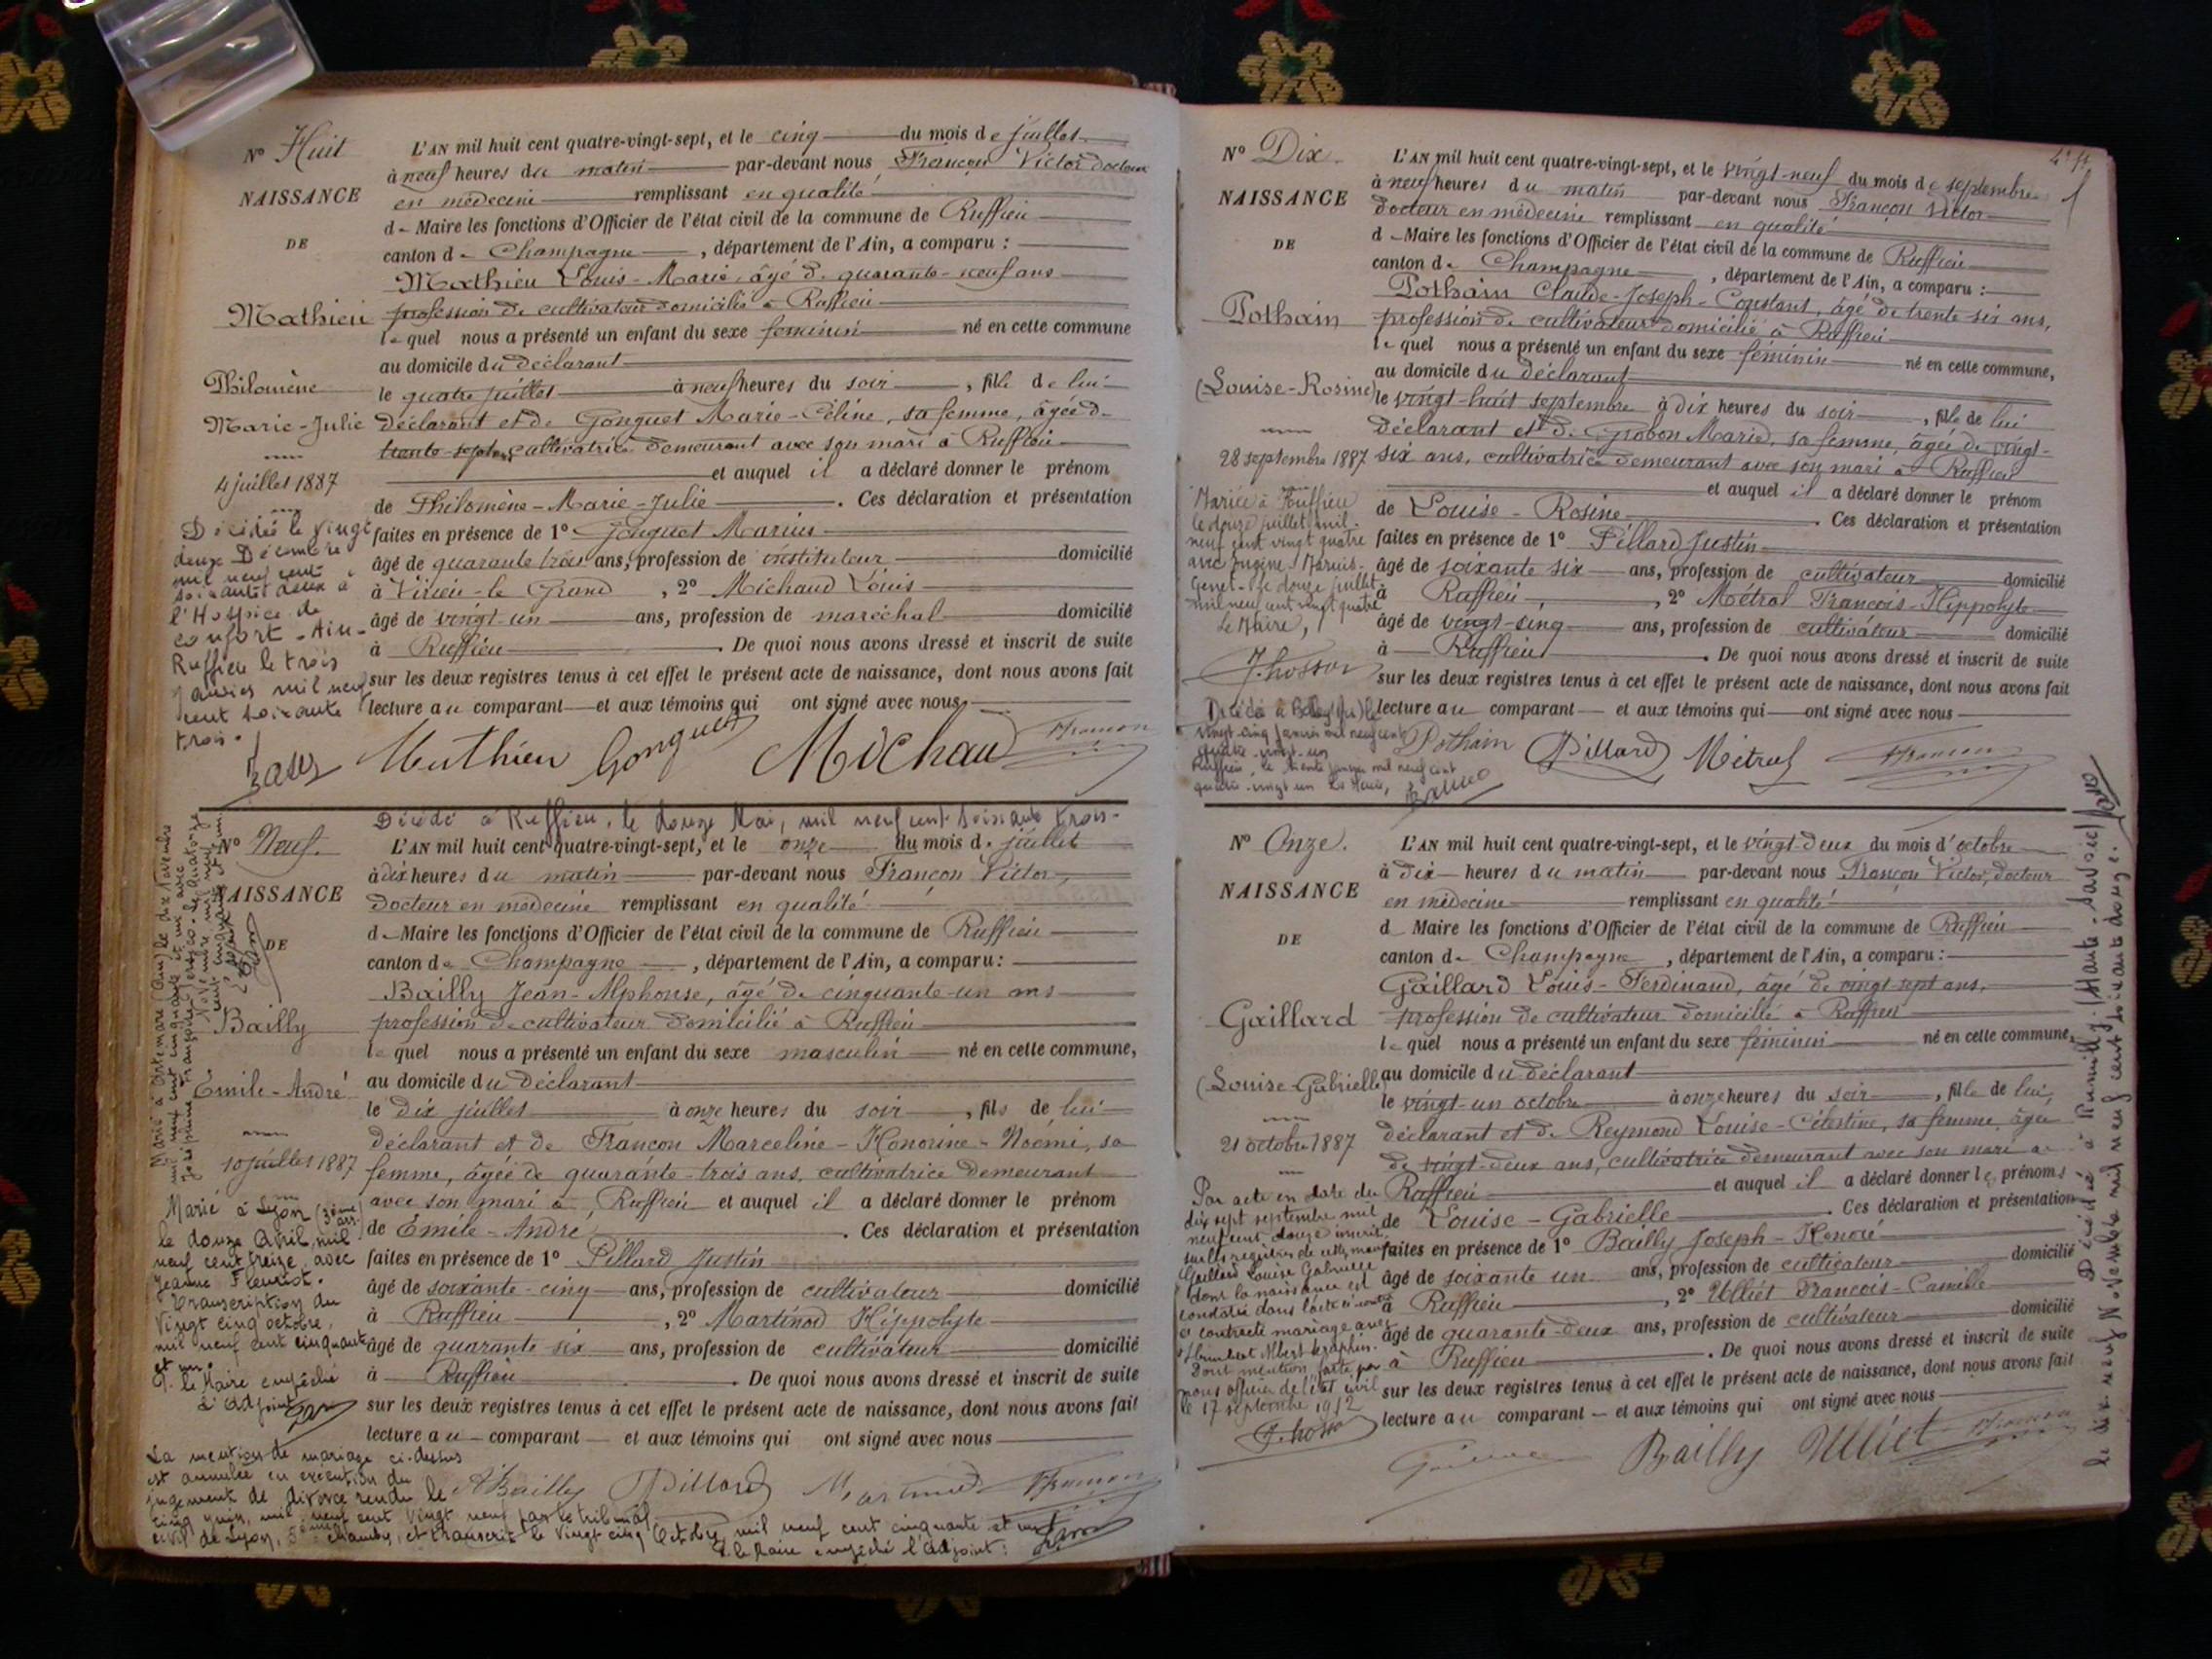 N° Huit
NAISSANCE
DE
Mathieu
Philomène
Marie-Julie
4 juillet 1887
Décédée le vingt
deux Décembre
mil neuf cent
soixante deux à
l'Hospice de
confort - Ain -
Ruffieu le trois
janvier mil neuf
cent soixante
trois.
L'AN mil huit cent quatre-vingt-sept, et le cinq du mois de juillet
à neuf heures du matin par-devant nous Françon Victor docteur
en médecine remplissant en qualité
d Maire les fonctions d'Officier de l'état civil de la commune de Ruffieu
canton de Champagne, département de l'Ain, a comparu :
Mathieu Louis-Marie, âgé de quarante-neuf ans
profession de cultivateur domicilié à Ruffieu
lequel nous a présenté un enfant du sexe féminin né en cette commune
au domicile du déclarant
le quatre juillet à neuf heures du soir, fille de lui
déclarant et de Gonguet Marie-Céline, sa femme, âgée de
trente-sept, cultivatrice demeurant avec son mari à Ruffieu
et auquel il a déclaré donner le prénom
de Philomène-Marie-Julie. Ces déclaration et présentation
faites en présence de 1° Gonguet Marius
âgé de quarante trois ans, profession de instituteur domicilié
à Virieu-le Grand, 2° Michaud Louis
âgé de vingt-un ans, profession de maréchal domicilié
à Ruffieu. De quoi nous avons dressé et inscrit de suite
sur les deux registres tenus à cet effet le présent acte de naissance, dont nous avons fait
lecture au comparant et aux témoins qui ont signé avec nous
Mathieu Gonguet Michaud Françon
Décédé à Ruffieu, le douze Mai, mil neuf cent soixante trois.
N° Neuf.
NAISSANCE
DE
Bailly
Emile-André
10 juillet 1887
Marié à Lyon (3ème arr.)
le douze Avril, mil
neuf cent treize, avec
Jeanne Fleurist.
Transcription du
Vingt cinq octobre,
mil neuf cent cinquante
et un.
P. le Maire empêché
L'adjoint
L'AN mil huit cent quatre-vingt-sept, et le onze du mois de juillet
à dix heures du matin par-devant nous Françon Victor,
docteur en médecine remplissant en qualité
d Maire les fonctions d'Officier de l'état civil de la commune de Ruffieu
canton de Champagne, département de l'Ain, a comparu :
Bailly Jean-Alphonse, âgé de cinquante-un ans
profession de cultivateur domicilié à Ruffieu
lequel nous a présenté un enfant du sexe masculin né en cette commune,
au domicile du déclarant
le dix juillet à onze heures du soir, fils de lui
déclarant et de Françon Marceline-Honorine-Noémi, sa
femme, âgée de quarante-trois ans, cultivatrice demeurant
avec son mari à Ruffieu et auquel il a déclaré donner le prénom
de Emile-André. Ces déclaration et présentation
faites en présence de 1° Pillard Justin
âgé de soixante-cinq ans, profession de cultivateur domicilié
à Ruffieu, 2° Martinod Hippolyte
âgé de quarante six ans, profession de cultivateur domicilié
à Ruffieu. De quoi nous avons dressé et inscrit de suite
sur les deux registres tenus à cet effet le présent acte de naissance, dont nous avons fait
lecture au comparant et aux témoins qui ont signé avec nous
La mention de mariage ci-dessus
est annulée en exécution du
jugement de divorce rendu le
cinq juin, mil neuf cent vingt neuf par le tribunal
civil de Lyon, 5ème chambre, et transcrit le vingt cinq Octobre, mil neuf cent cinquante et un.
P. le Maire empêché l'adjoint :
A Bailly Pillard Martinod Françon
N° Dix.
NAISSANCE
DE
Pothain
(Louise-Rosine)
28 septembre 1887
Mariée à Ruffieu
le douze juillet mil
neuf cent vingt quatre
avec Eugène-Marius
Genet. Le douze juillet
mil neuf cent vingt quatre
Le Maire,
L'AN mil huit cent quatre-vingt-sept, et le vingt-neuf du mois de septembre
à neuf heures du matin par-devant nous Françon Victor
docteur en médecine remplissant en qualité
d Maire les fonctions d'Officier de l'état civil de la commune de Ruffieu
canton de Champagne, département de l'Ain, a comparu :
Pothain Claude-Joseph-Constant, âgé de trente six ans,
profession de cultivateur domicilié à Ruffieu
lequel nous a présenté un enfant du sexe féminin né en cette commune,
au domicile du déclarant
le vingt-huit septembre à dix heures du soir, fille de lui
déclarant et de Gobon Marie, sa femme, âgée de vingt-
six ans, cultivatrice demeurant avec son mari à Ruffieu
et auquel il a déclaré donner le prénom
de Louise-Rosine. Ces déclaration et présentation
faites en présence de 1° Pillard Justin
âgé de soixante six ans, profession de cultivateur domicilié
à Ruffieu, 2° Métral François-Hippolyte
âgé de vingt-cinq ans, profession de cultivateur domicilié
à Ruffieu. De quoi nous avons dressé et inscrit de suite
sur les deux registres tenus à cet effet le présent acte de naissance, dont nous avons fait
lecture au comparant et aux témoins qui ont signé avec nous
Décédée à Belley (Ain) le
vingt-cinq janvier mil neuf cent
quatre-vingt-un
Ruffieu, le trente janvier mil neuf cent
quatre-vingt un Le Maire,
Pothain Pillard Métral Françon
N° Onze.
NAISSANCE
DE
Gaillard
(Louise-Gabrielle)
21 octobre 1887
Par acte en date du
dix sept septembre mil
neuf cent douze inscrit
sur les registres de cette mairie
Gaillard Louise Gabrielle
dont la naissance est
constatée dans l'acte ci-contre
a contracté mariage avec
Humbert Albert Séraphin.
Dont mention faite par
nous officier de l'état civil
le 17 septembre 1912
L'AN mil huit cent quatre-vingt-sept, et le vingt-deux du mois d'octobre
à dix heures du matin par-devant nous Françon Victor, docteur
en médecine remplissant en qualité
d Maire les fonctions d'Officier de l'état civil de la commune de Ruffieu
canton de Champagne, département de l'Ain, a comparu :
Gaillard Louis-Ferdinand, âgé de vingt sept ans,
profession de cultivateur domicilié à Ruffieu
lequel nous a présenté un enfant du sexe féminin né en cette commune,
au domicile du déclarant
le vingt-un octobre à onze heures du soir, fille de lui,
déclarant et de Reymond Louise-Célestine, sa femme, âgée
de vingt-deux ans, cultivatrice demeurant avec son mari à
Ruffieu et auquel il a déclaré donner les prénoms
de Louise-Gabrielle. Ces déclaration et présentation
faites en présence de 1° Bailly Joseph-Honoré
âgé de soixante un ans, profession de cultivateur domicilié
à Ruffieu, 2° Ulliet François-Camille
âgé de quarante-deux ans, profession de cultivateur domicilié
à Ruffieu. De quoi nous avons dressé et inscrit de suite
sur les deux registres tenus à cet effet le présent acte de naissance, dont nous avons fait
lecture au comparant et aux témoins qui ont signé avec nous
Bailly Ulliet Françon
Décédée à Rumilly (Haute-Savoie)
le dix neuf Novembre mil neuf cent soixante douze.